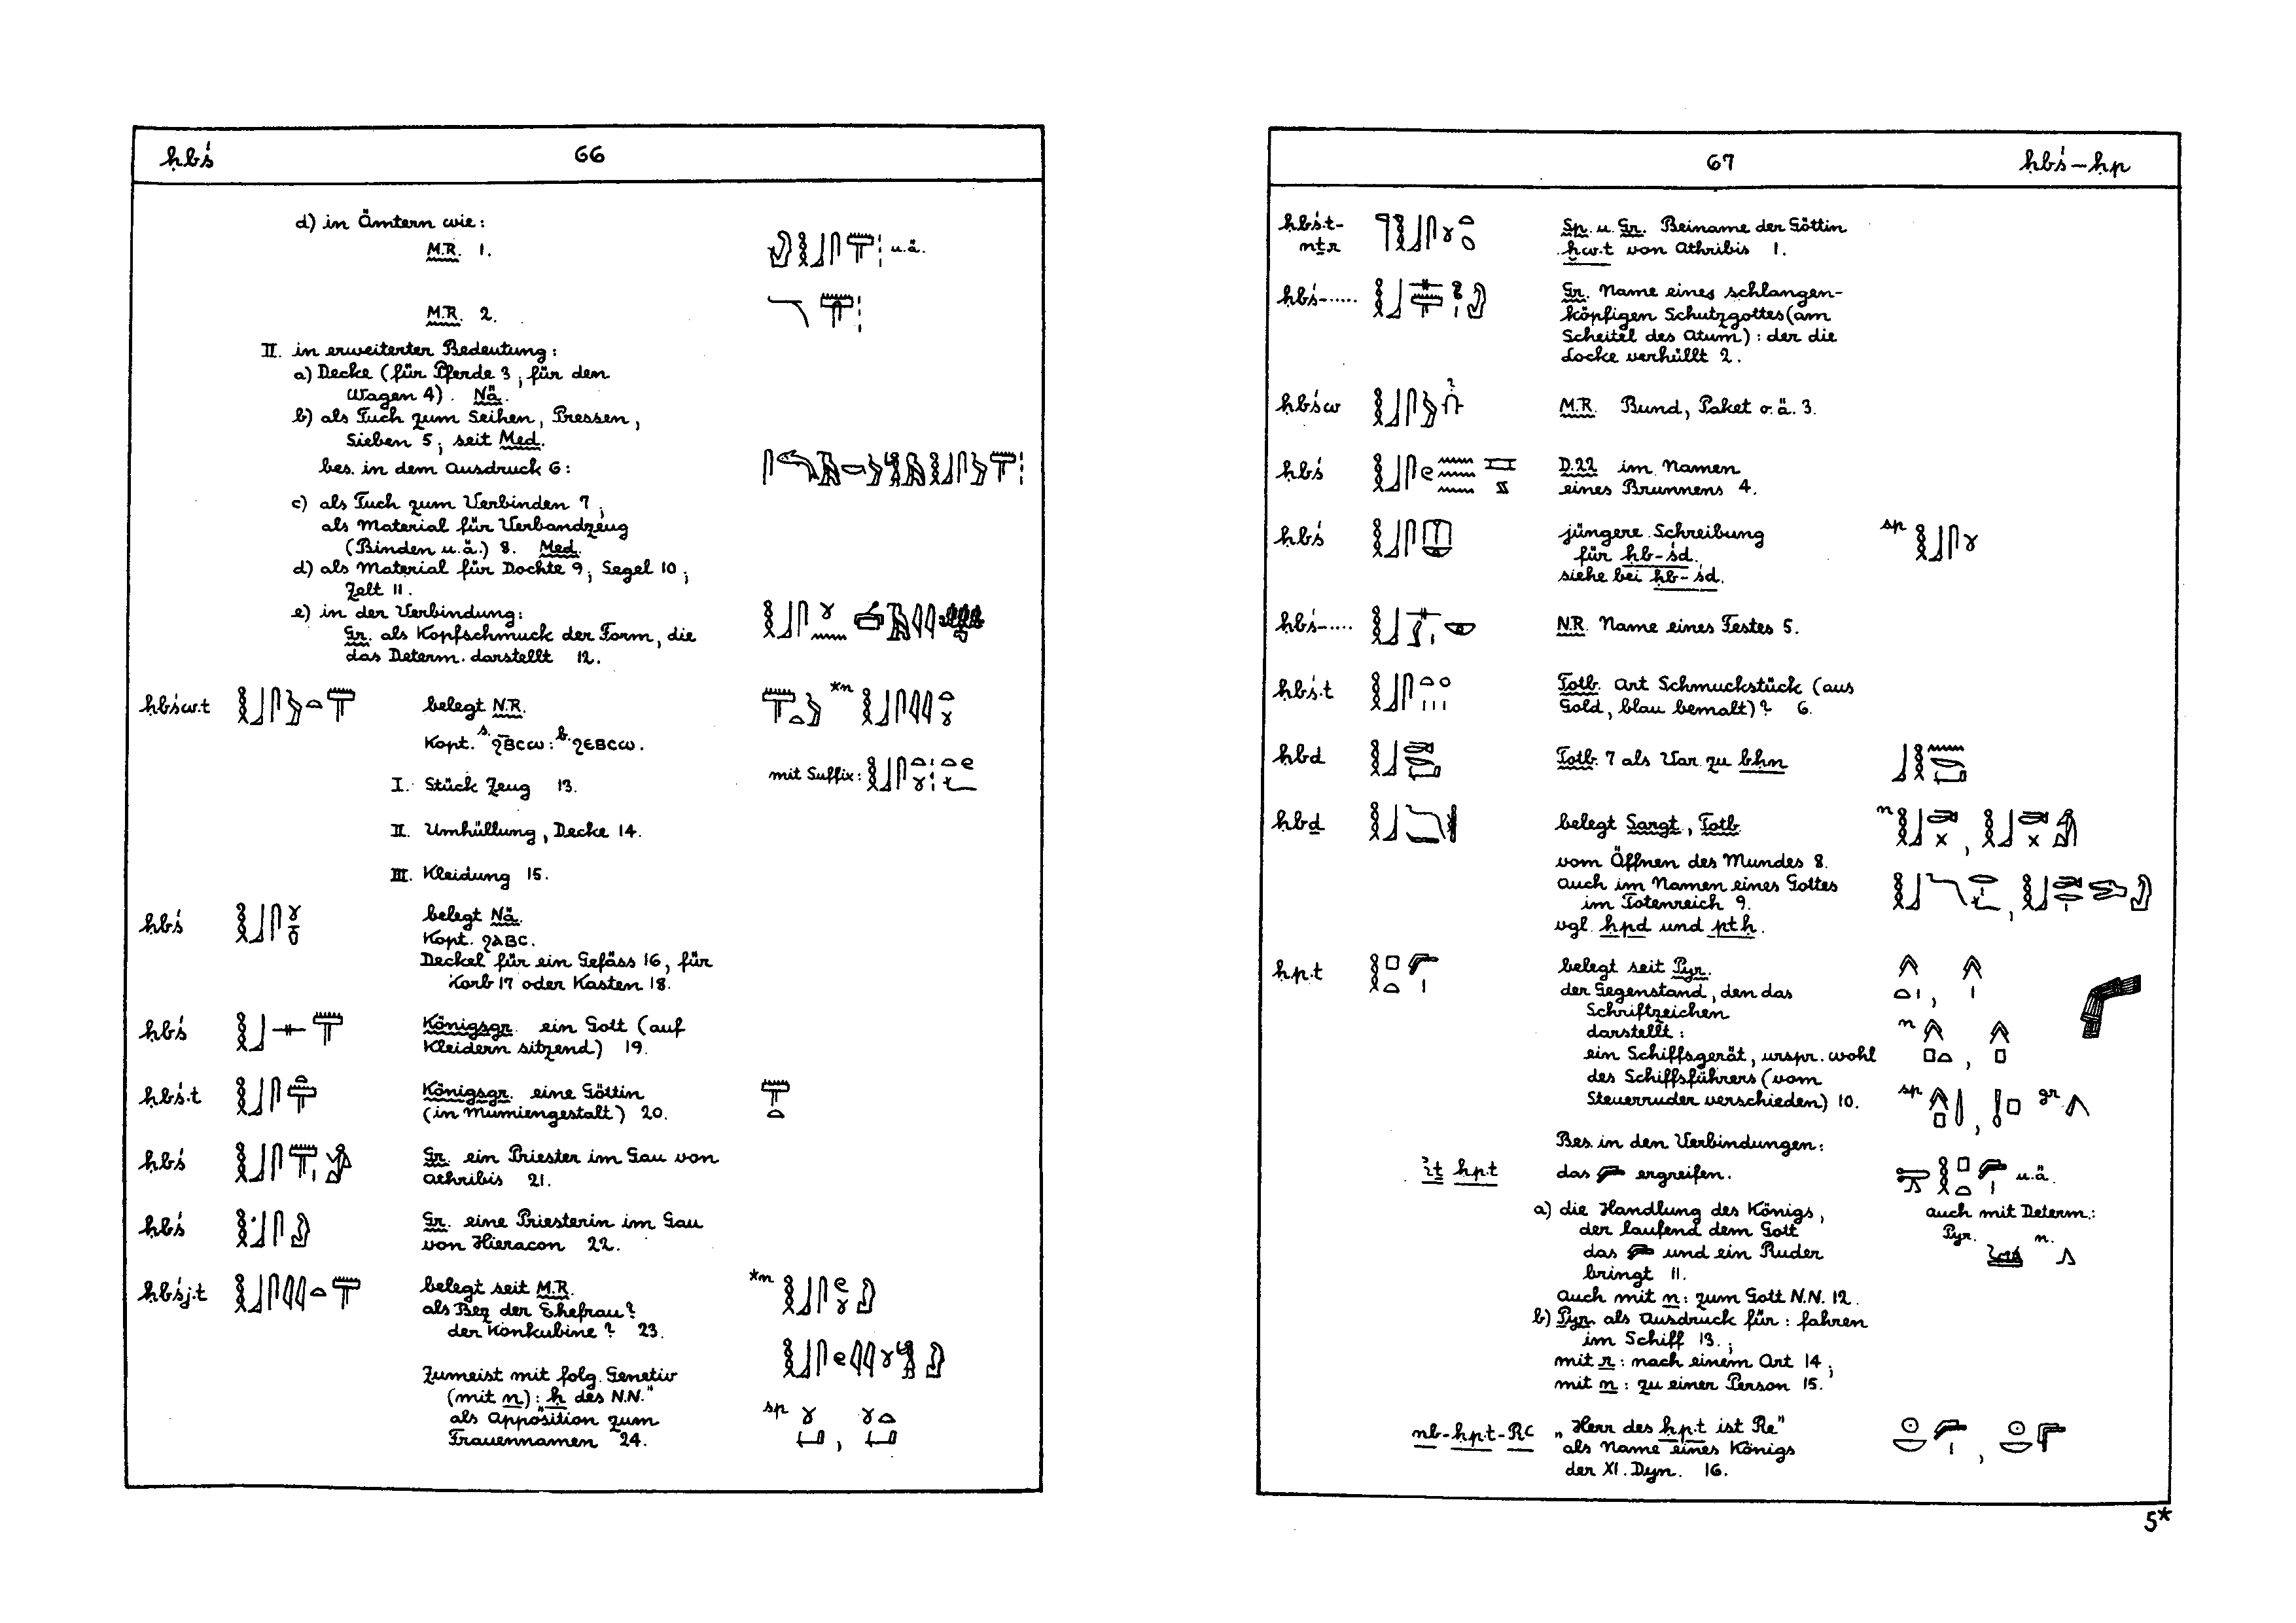 ḥbś 66
d) in Ämtern wie:
M.R. 1. u.ä.
M.R. 2.
II. in erweiterter Bedeutung:
a) Decke (für Pferde 3, für den
Wagen 4). Nä.
b) als Tuch zum Seihen, Pressen,
Sieben 5; seit Med.
bes. in dem Ausdruck 6:
c) als Tuch zum Verbinden 7;
als Material für Verbandzeug
(Binden u.ä.) 8. Med.
d) als Material für Dochte 9, Segel 10;
Zelt 11.
e) in der Verbindung:
Gr. als Kopfschmuck der Form, die
das Determ. darstellt 12.
ḥbśw.t belegt N.R. *n
Kopt. s. ϩⲃⲥⲱ: b. ϩⲉⲃⲥⲱ.
mit Suffix:
I. Stück Zeug 13.
II. Umhüllung, Decke 14.
III. Kleidung 15.
ḥbś belegt Nä.
Kopt. ϩⲁⲃⲥ.
Deckel für ein Gefäss 16, für
Korb 17 oder Kasten 18.
ḥbś Königsgr. ein Gott (auf
Kleidern sitzend) 19.
ḥbś.t Königsgr. eine Göttin
(in Mumiengestalt) 20.
ḥbś Gr. ein Priester im Gau von
Athribis 21.
ḥbś Gr. eine Priesterin im Gau
von Hieracon 22.
ḥbśj.t belegt seit M.R. *n
als Bez. der Ehefrau?
der Konkubine? 23.
Zumeist mit folg. Genetiv
(mit n): ḥ des N.N."
als Apposition zum sp
Frauennamen 24.
67 ḥbś–ḥp
ḥbś.t- Sp. u. Gr. Beiname der Göttin
nṯr ḥw.t von Athribis 1.
ḥbś-..... Gr. Name eines schlangen-
köpfigen Schutzgottes (am
Scheitel des Atum): der die
Locke verhüllt 2.
ḥbśw M.R. Bund, Paket o.ä. 3.
ḥbś D.22 im Namen
eines Brunnens 4.
ḥbś jüngere Schreibung sp
für ḥb-śd.
siehe bei ḥb-śd.
ḥbś-.... N.R. Name eines Festes 5.
ḥbś.t Totb. Art Schmuckstück (aus
Gold, blau bemalt)? 6.
ḥbd Totb. 7 als Var. zu bḥn
ḥbḏ belegt Sargt., Totb. n
vom Öffnen des Mundes 8.
auch im Namen eines Gottes
im Totenreich 9.
vgl. ḥpd und ptḥ.
ḥp.t belegt seit Pyr.
der Gegenstand, den das
Schriftzeichen
darstellt: n
ein Schiffsgerät, urspr. wohl
des Schiffsführers (vom
Steuerruder verschieden) 10. sp gr
Bes. in den Verbindungen:
ꞽṯ ḥp.t das ergreifen. u.ä.
a) die Handlung des Königs, auch mit Determ.:
der laufend dem Gott Pyr. n.
das und ein Ruder
bringt 11.
Auch mit n: zum Gott N.N. 12.
b) Pyr. als Ausdruck für: fahren
im Schiff 13.;
mit r: nach einem Ort 14;
mit n: zu einer Person 15.
nb-ḥp.t-Rꜥ „Herr des ḥp.t ist Re"
als Name eines Königs
der XI. Dyn. 16.
5*